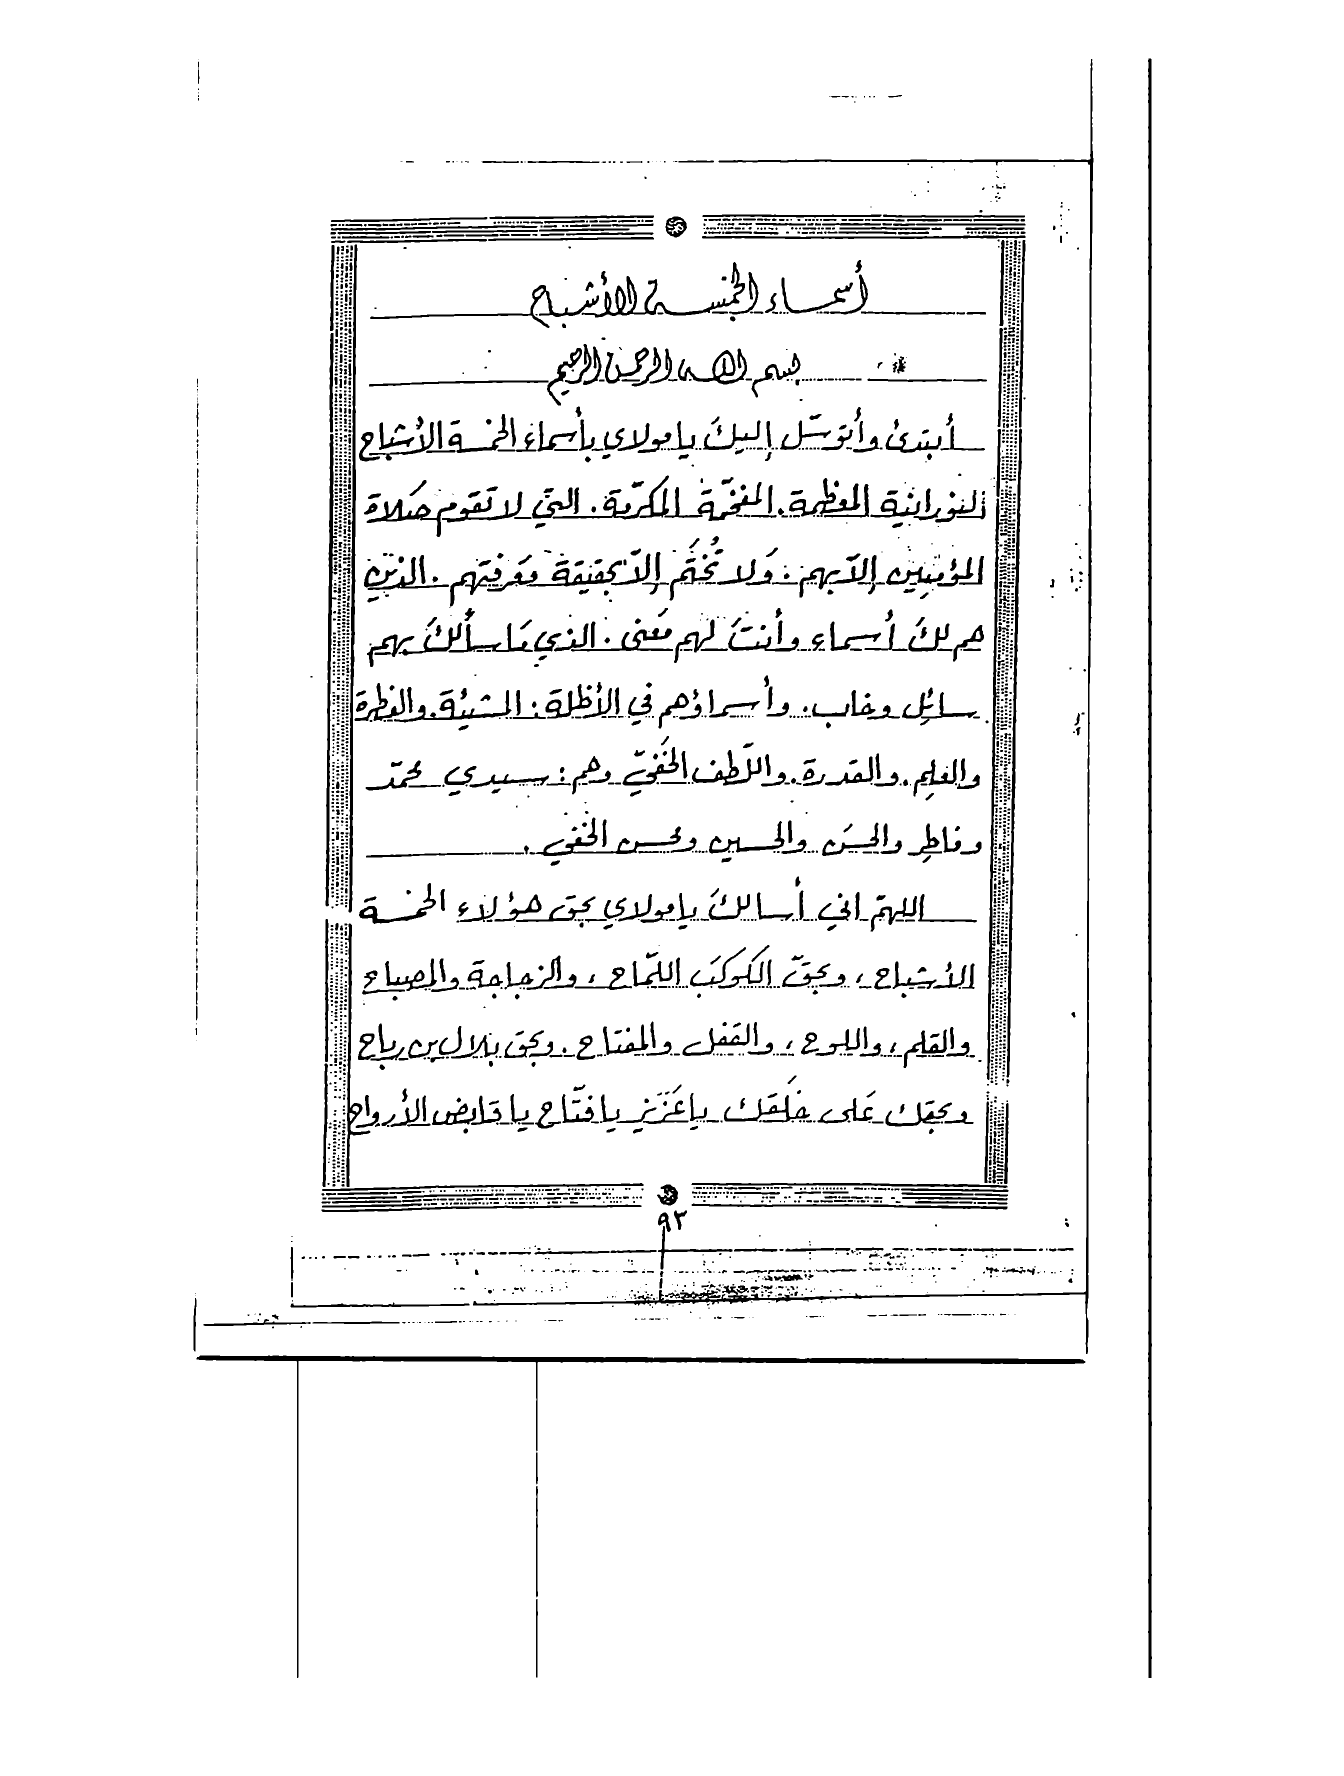 أسماء الخمسة الأشباح
بسم الله الرحمن الرحيم
أبتدئ وأتوسّل إليكَ يا مولاي بأسماء الخمسة الأشباح
النورانية المعظمة. المفخّمة المكرّمة. التي لا تَقوم صَلاة
المؤمنِين إلاّ بهم. وَلا تُختَم إلاّ بحقيقة مَعرفتهم. الذين
هم لكَ أسماء وأنتَ لهم مَعنى. الذي مَا سألكَ بهم
سائِل وخاب. وأسماؤهم في الأظلة: المشيئة. والفطرة
والعلِم. والقدرة. واللّطف الخَفيّ وهم: سيدي محمّد
وفاطِر والحسَن والحسين ومحسن الخفي.
اللهمّ اني أسالكَ يا مولاي بحق هؤلاء الخمسة
الأشباح، وبحقّ الكوكَب اللمّاح، والزجاجة والمصباح
والقلم، واللوح، والقَفل والمفتاح. وبحق بلال بن رباح
وبحقك عَلى خَلقك يا عَزَيز يا فتّاح يا قابض الأرواح
٩٣